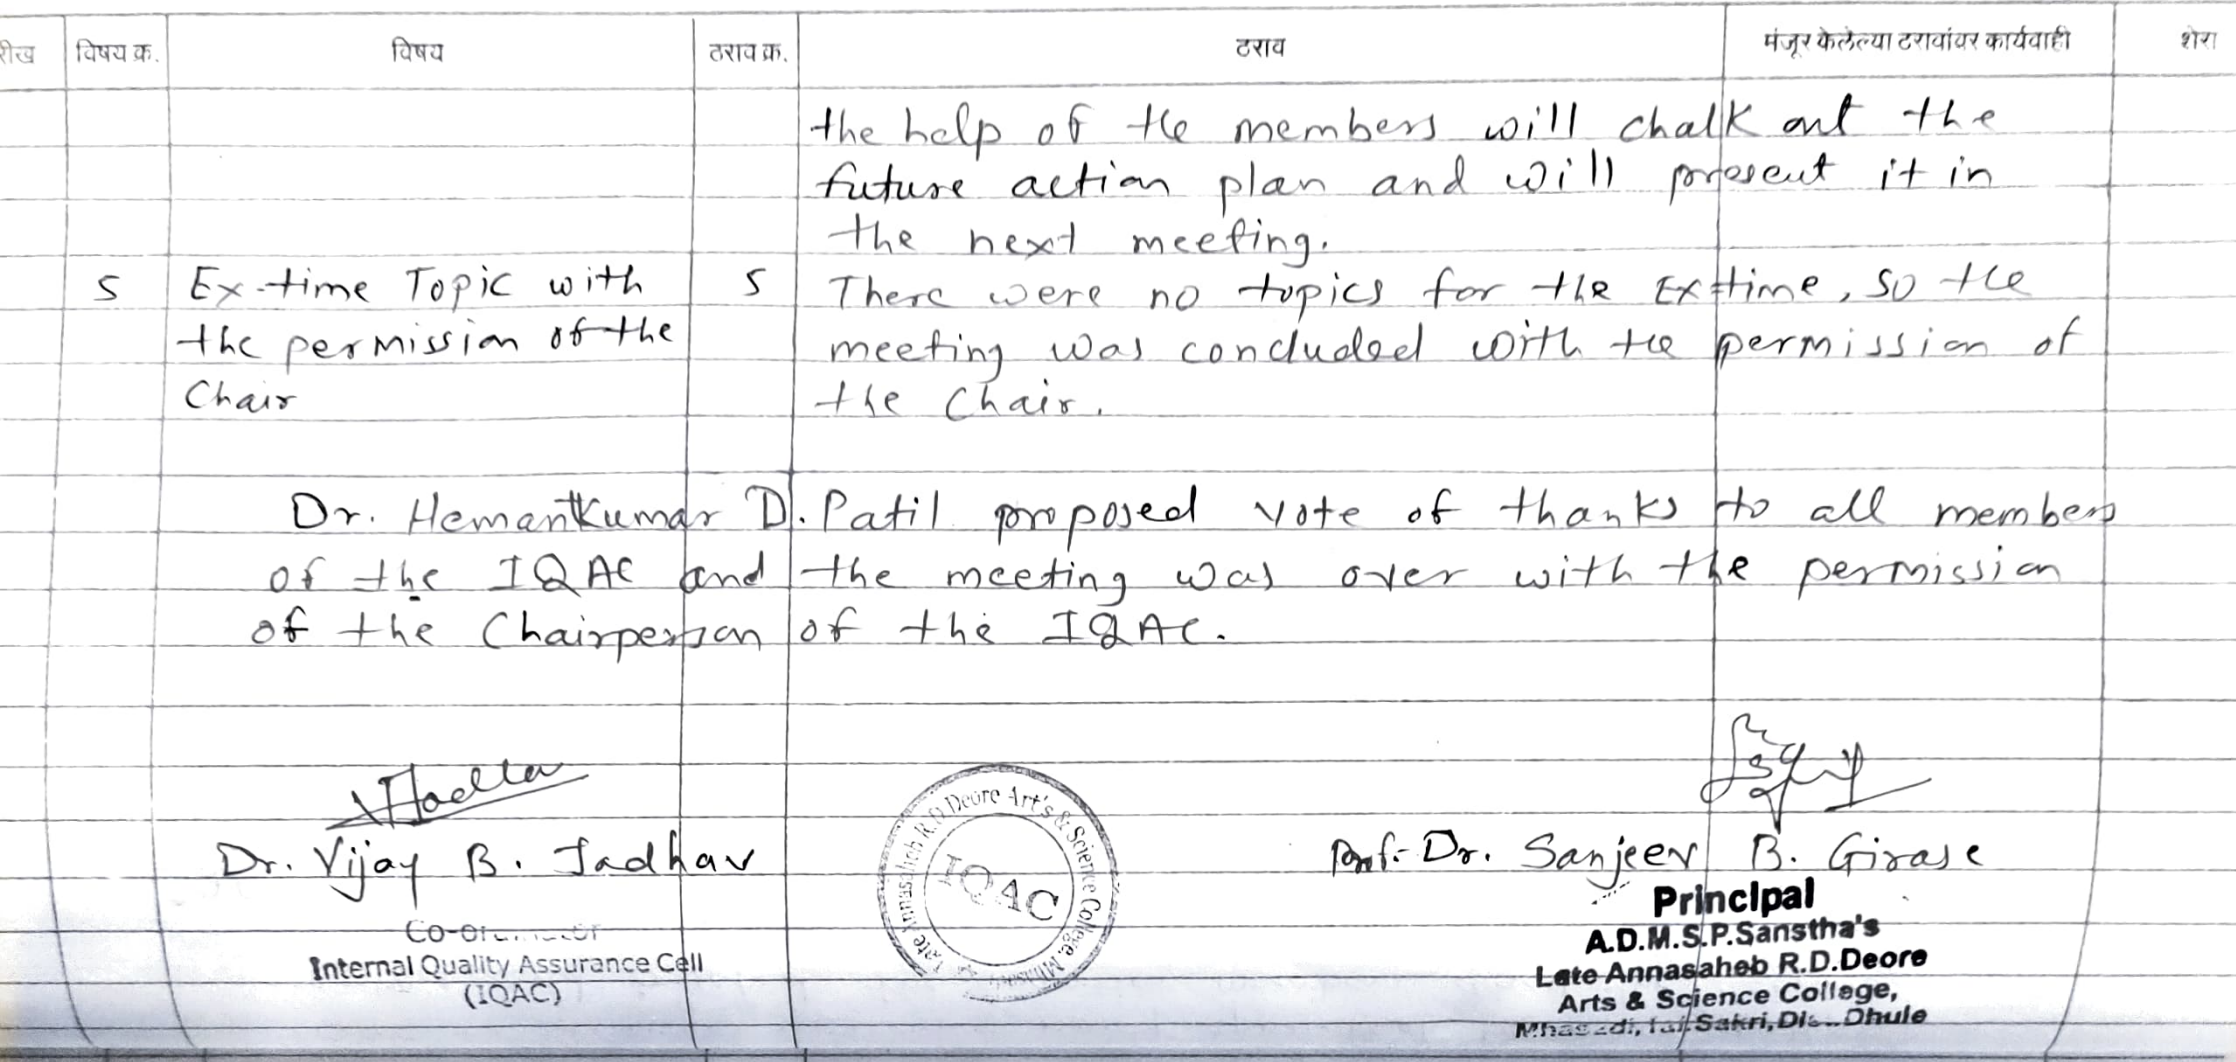 विषय क्र. विषय ठराव क्र. ठराव मंजूर केलेल्या ठरावांवर कार्यवाही शेरा
the help of the members will chalk out the
future action plan and will present it in
the next meeting.
5 Ex-time Topic with 5 There were no topics for the Ex-time, so the
the permission of the meeting was concluded with the permission of
Chair the Chair.
Dr. Hemantkumar D. Patil proposed vote of thanks to all members
of the IQAC and the meeting was over with the permission
of the Chairperson of the IQAC.
Dr. Vijay B. Jadhav
Internal Quality Assurance Cell
(IQAC)
Late Annasaheb R.D. Deore Art's & Science College,
IQAC
Prof. Dr. Sanjeev B. Girase
Principal
A.D.M.S.P.Sanstha's
Late Annasaheb R.D.Deore
Arts & Science College,
Sakri, Dhule